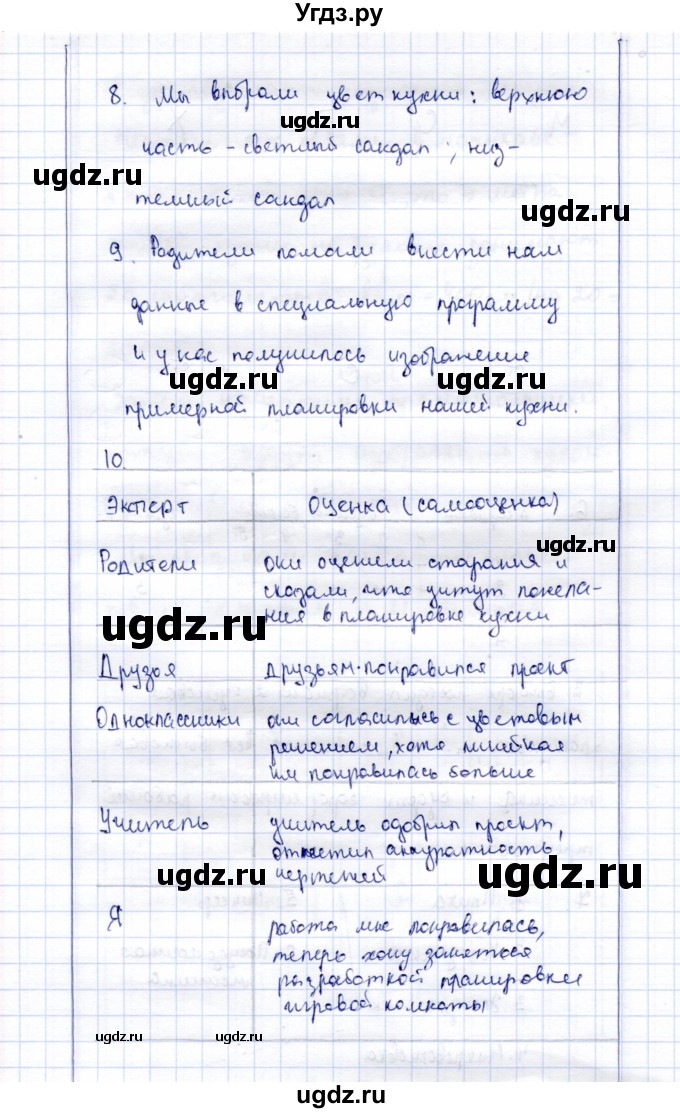 Угдз.ру
8. Мы выбрали цвет кухни: верхнюю
ugdz.ru
часть - светлый сандал; низ-
ugdz.ru
темный сандал
ugdz.ru
9. Родители помогли внести нам
данные в специальную программу
и у нас получилось изображение
ugdz.ru ugdz.ru
примерной планировки нашей кухни.
10.
Эксперт Оценка (самооценка)
Родители они оценили старания и
сказали, что учтут пожела-
ния в планировке кухни
ugdz.ru ugdz.ru
Друзья друзьям понравился проект
Одноклассники они согласились с цветовым
решением, хотя
им понравилась больше
ugdz.ru
Учитель учитель одобрил проект,
отметил аккуратность
чертежей
ugdz.ru ugdz.ru
Я работа мне понравилась,
теперь хочу заняться
разработкой планировки
игровой комнаты
ugdz.ru ugdz.ru
ugdz.ru